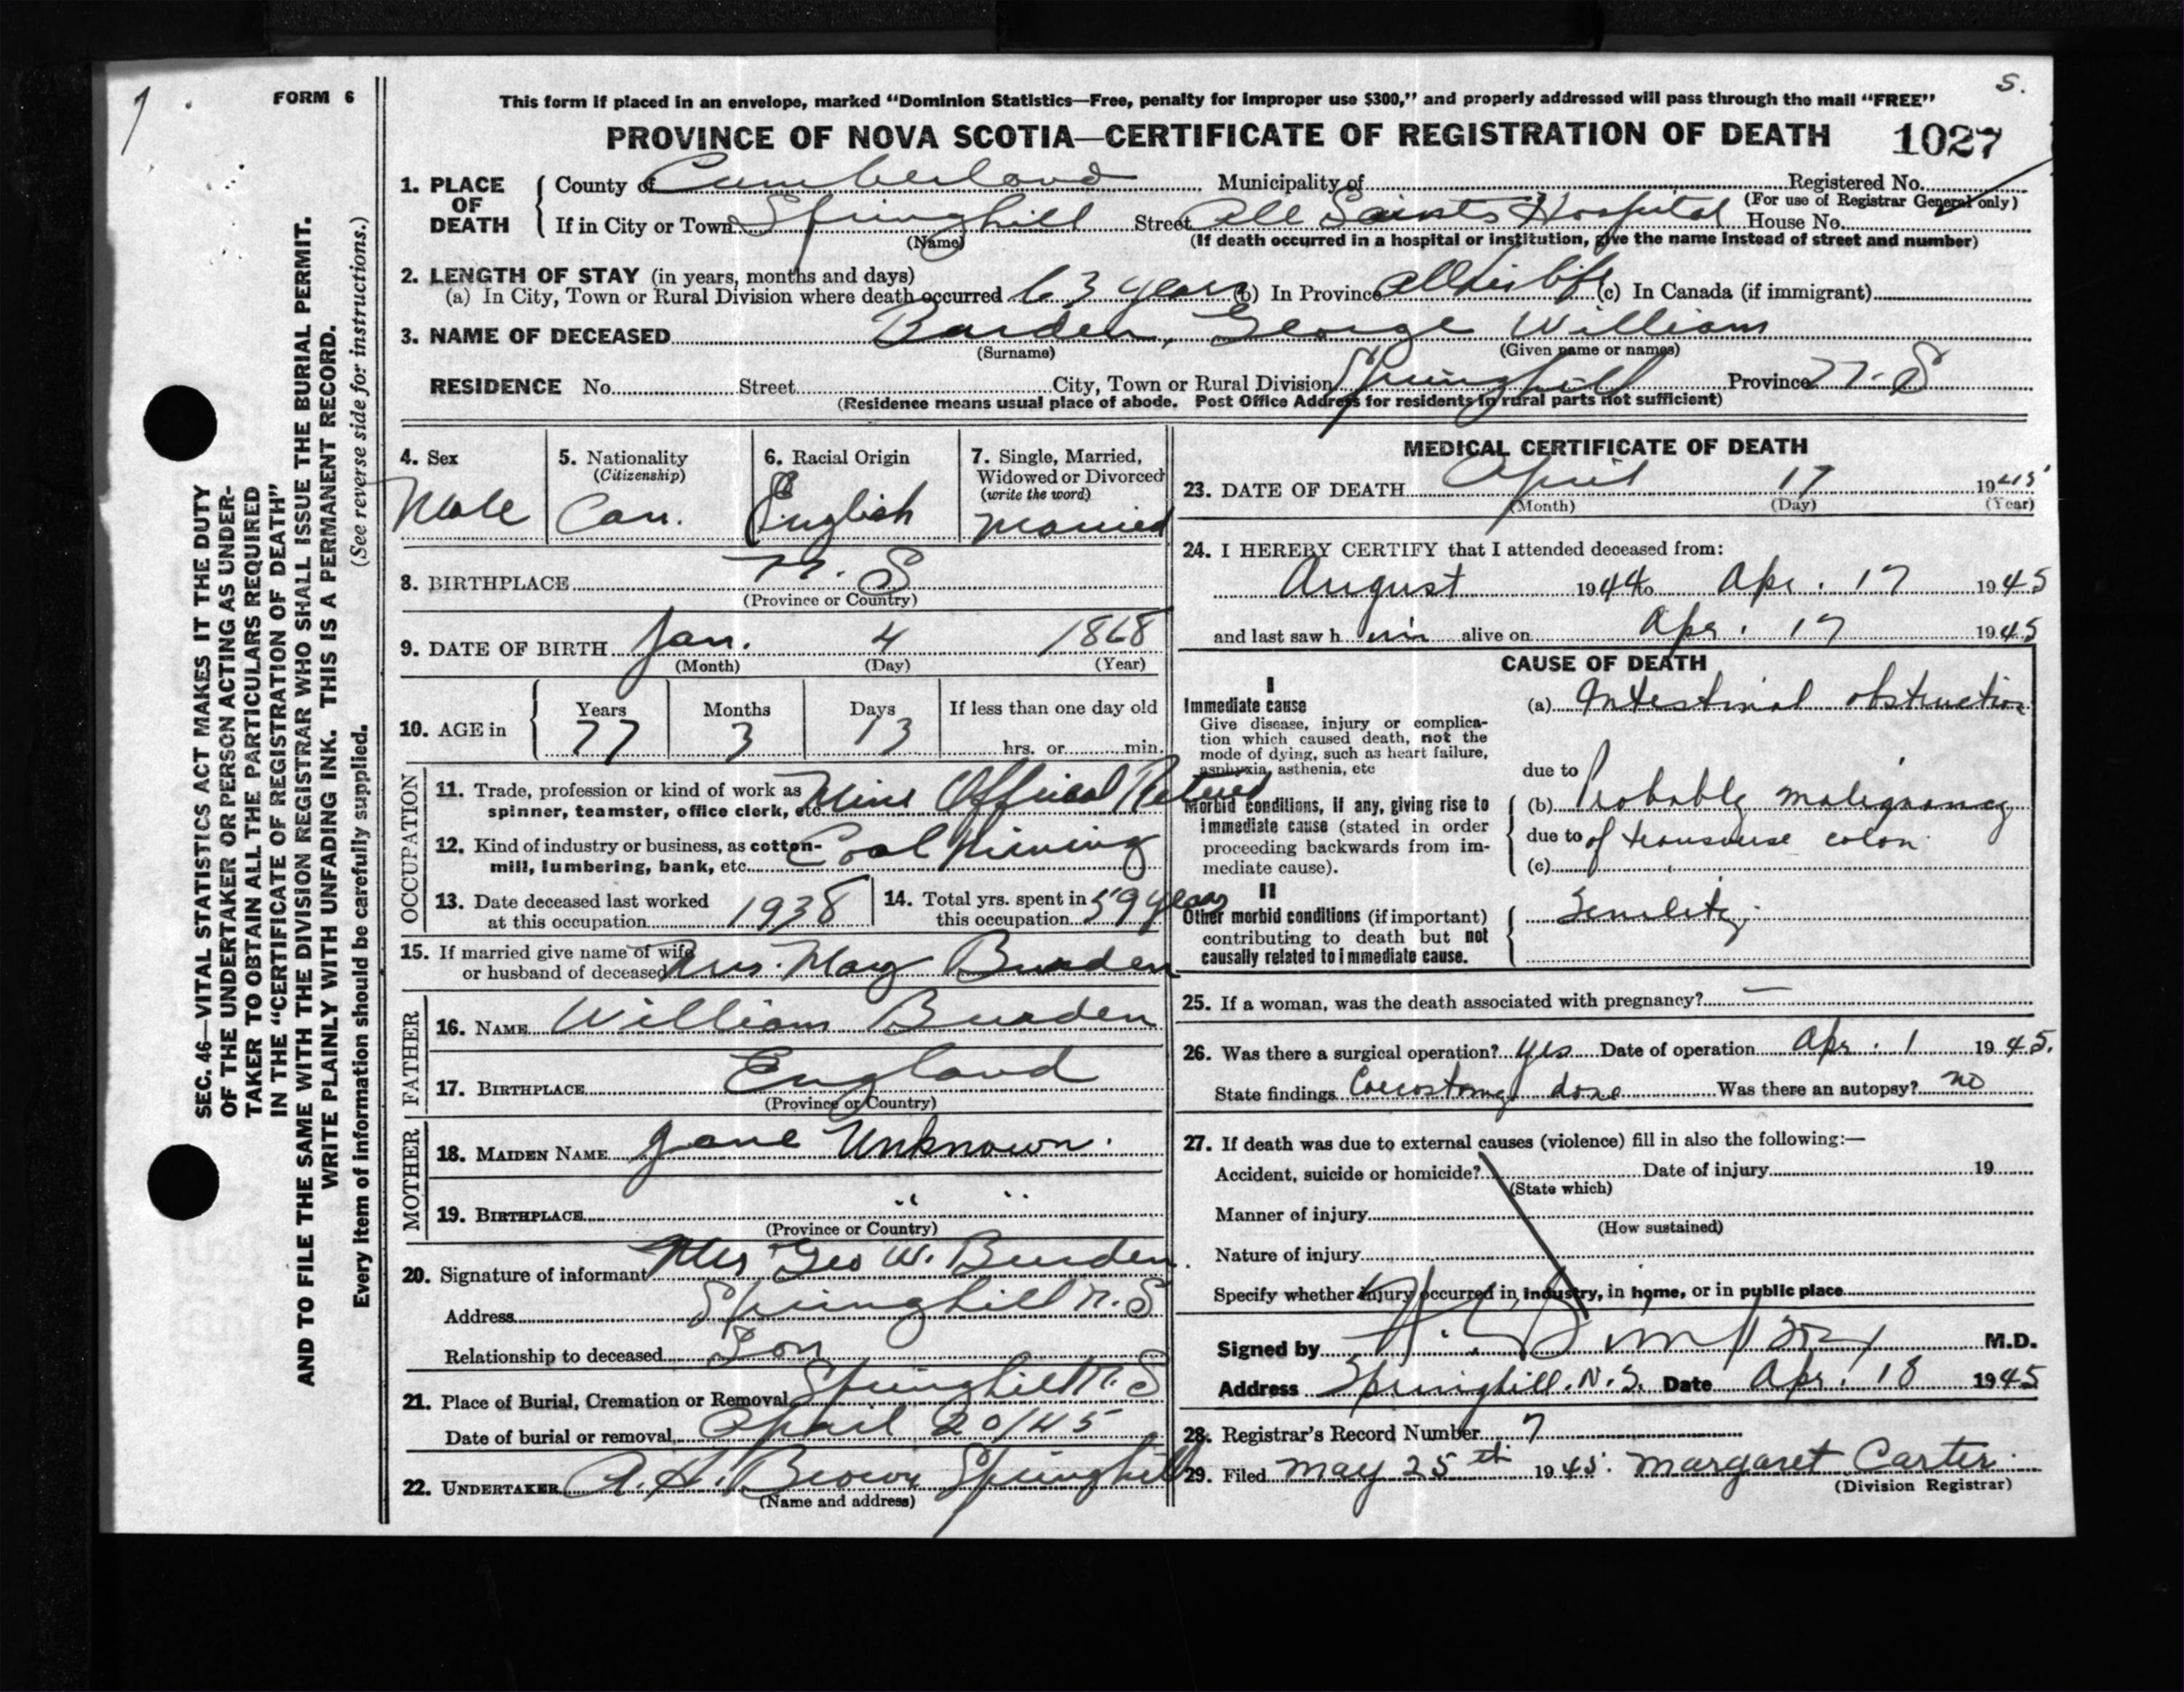 S.
FORM 6
This form if placed in an envelope, marked "Dominion Statistics—Free, penalty for improper use $300," and properly addressed will pass through the mail "FREE"
PROVINCE OF NOVA SCOTIA—CERTIFICATE OF REGISTRATION OF DEATH 1027
1. PLACE OF DEATH
County of Cumberland Municipality of Registered No.
(For use of Registrar General only)
If in City or Town Springhill Street All Saints Hospital House No.
(Name) (If death occurred in a hospital or institution, give the name instead of street and number)
2. LENGTH OF STAY (in years, months and days)
(a) In City, Town or Rural Division where death occurred 63 years (b) In Province All his life (c) In Canada (if immigrant)
3. NAME OF DECEASED Burden, George William
(Surname) (Given name or names)
RESIDENCE No. Street City, Town or Rural Division Springhill Province N. S
(Residence means usual place of abode. Post Office Address for residents in rural parts not sufficient)
4. Sex
Male
5. Nationality
(Citizenship)
Can.
6. Racial Origin
English
7. Single, Married,
Widowed or Divorced
(write the word)
Married
8. BIRTHPLACE N. S
(Province or Country)
9. DATE OF BIRTH Jan. 4 1868
(Month) (Day) (Year)
10. AGE in
Years Months Days If less than one day old
77 3 13 hrs. or min.
OCCUPATION
11. Trade, profession or kind of work as Mine Official Retired
spinner, teamster, office clerk, etc.
12. Kind of industry or business, as cotton- Coal Mining
mill, lumbering, bank, etc.
13. Date deceased last worked
at this occupation 1938
14. Total yrs. spent in
this occupation 59 years
15. If married give name of wife
or husband of deceased Mrs. May Burden
FATHER
16. NAME William Burden
17. BIRTHPLACE England
(Province or Country)
MOTHER
18. MAIDEN NAME Jane Unknown.
19. BIRTHPLACE " "
(Province or Country)
20. Signature of informant Mrs Geo W. Burden.
Address Springhill N. S
Relationship to deceased Son
21. Place of Burial, Cremation or Removal Springhill N. S
Date of burial or removal April 20/45
22. UNDERTAKER A. H. Brown Springhill
(Name and address)
MEDICAL CERTIFICATE OF DEATH
23. DATE OF DEATH April 17 1945
(Month) (Day) (Year)
24. I HEREBY CERTIFY that I attended deceased from:
August 1944 to Apr. 17 1945
and last saw h im alive on Apr. 17 1945
CAUSE OF DEATH
I
Immediate cause
Give disease, injury or complica-
tion which caused death, not the
mode of dying, such as heart failure,
asphyxia, asthenia, etc
(a) Intestinal obstruction
due to
Morbid conditions, if any, giving rise to
immediate cause (stated in order
proceeding backwards from im-
mediate cause).
(b) Probably malignancy
due to of transverse colon
(c)
II
Other morbid conditions (if important)
contributing to death but not
causally related to immediate cause.
Senility
25. If a woman, was the death associated with pregnancy? —
26. Was there a surgical operation? Yes Date of operation Apr. 1 1945.
State findings Coecostomy done Was there an autopsy? no
27. If death was due to external causes (violence) fill in also the following:—
Accident, suicide or homicide? Date of injury 19
(State which)
Manner of injury
(How sustained)
Nature of injury
Specify whether injury occurred in industry, in home, or in public place
Signed by M.D.
Address Springhill. N. S. Date Apr. 18 1945
28. Registrar's Record Number 7
29. Filed May 25th 1945. Margaret Carter.
(Division Registrar)
SEC. 46—VITAL STATISTICS ACT MAKES IT THE DUTY
OF THE UNDERTAKER OR PERSON ACTING AS UNDER-
TAKER TO OBTAIN ALL THE PARTICULARS REQUIRED
IN THE "CERTIFICATE OF REGISTRATION OF DEATH"
AND TO FILE THE SAME WITH THE DIVISION REGISTRAR WHO SHALL ISSUE THE BURIAL PERMIT.
WRITE PLAINLY WITH UNFADING INK. THIS IS A PERMANENT RECORD.
Every item of information should be carefully supplied. (See reverse side for instructions.)